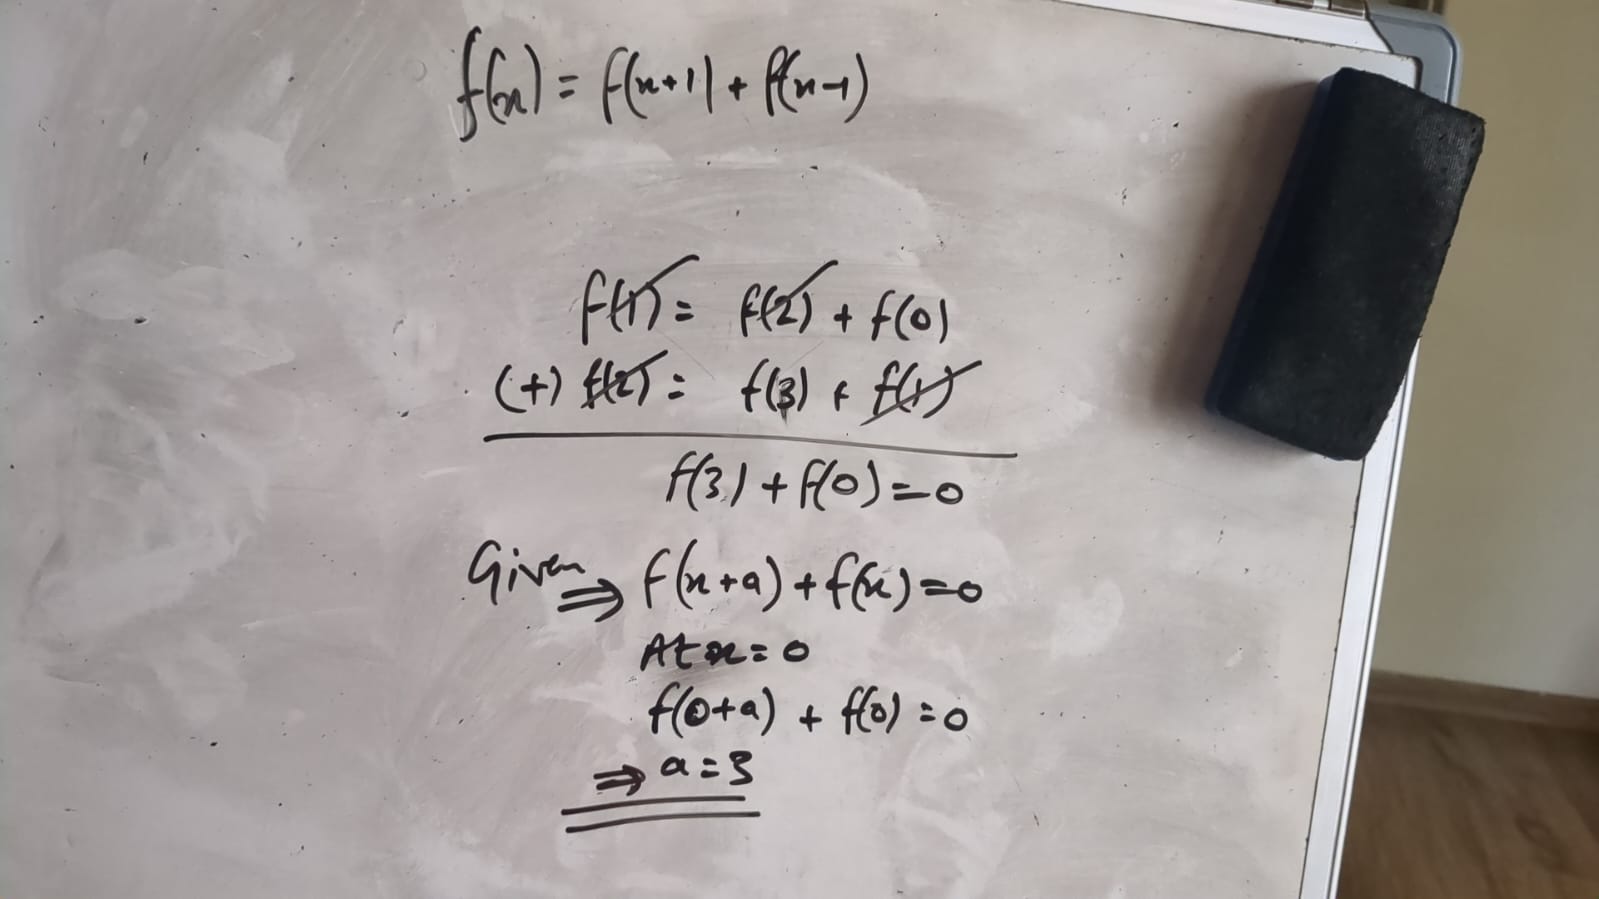 f(x) = f(x+1) + f(x-1)
f(1) = f(2) + f(0)
(+) f(2) = f(3) + f(1)
f(3) + f(0) = 0
Given ⇒ f(x+a) + f(x) = 0
At x = 0
f(0+a) + f(0) = 0
⇒ a = 3